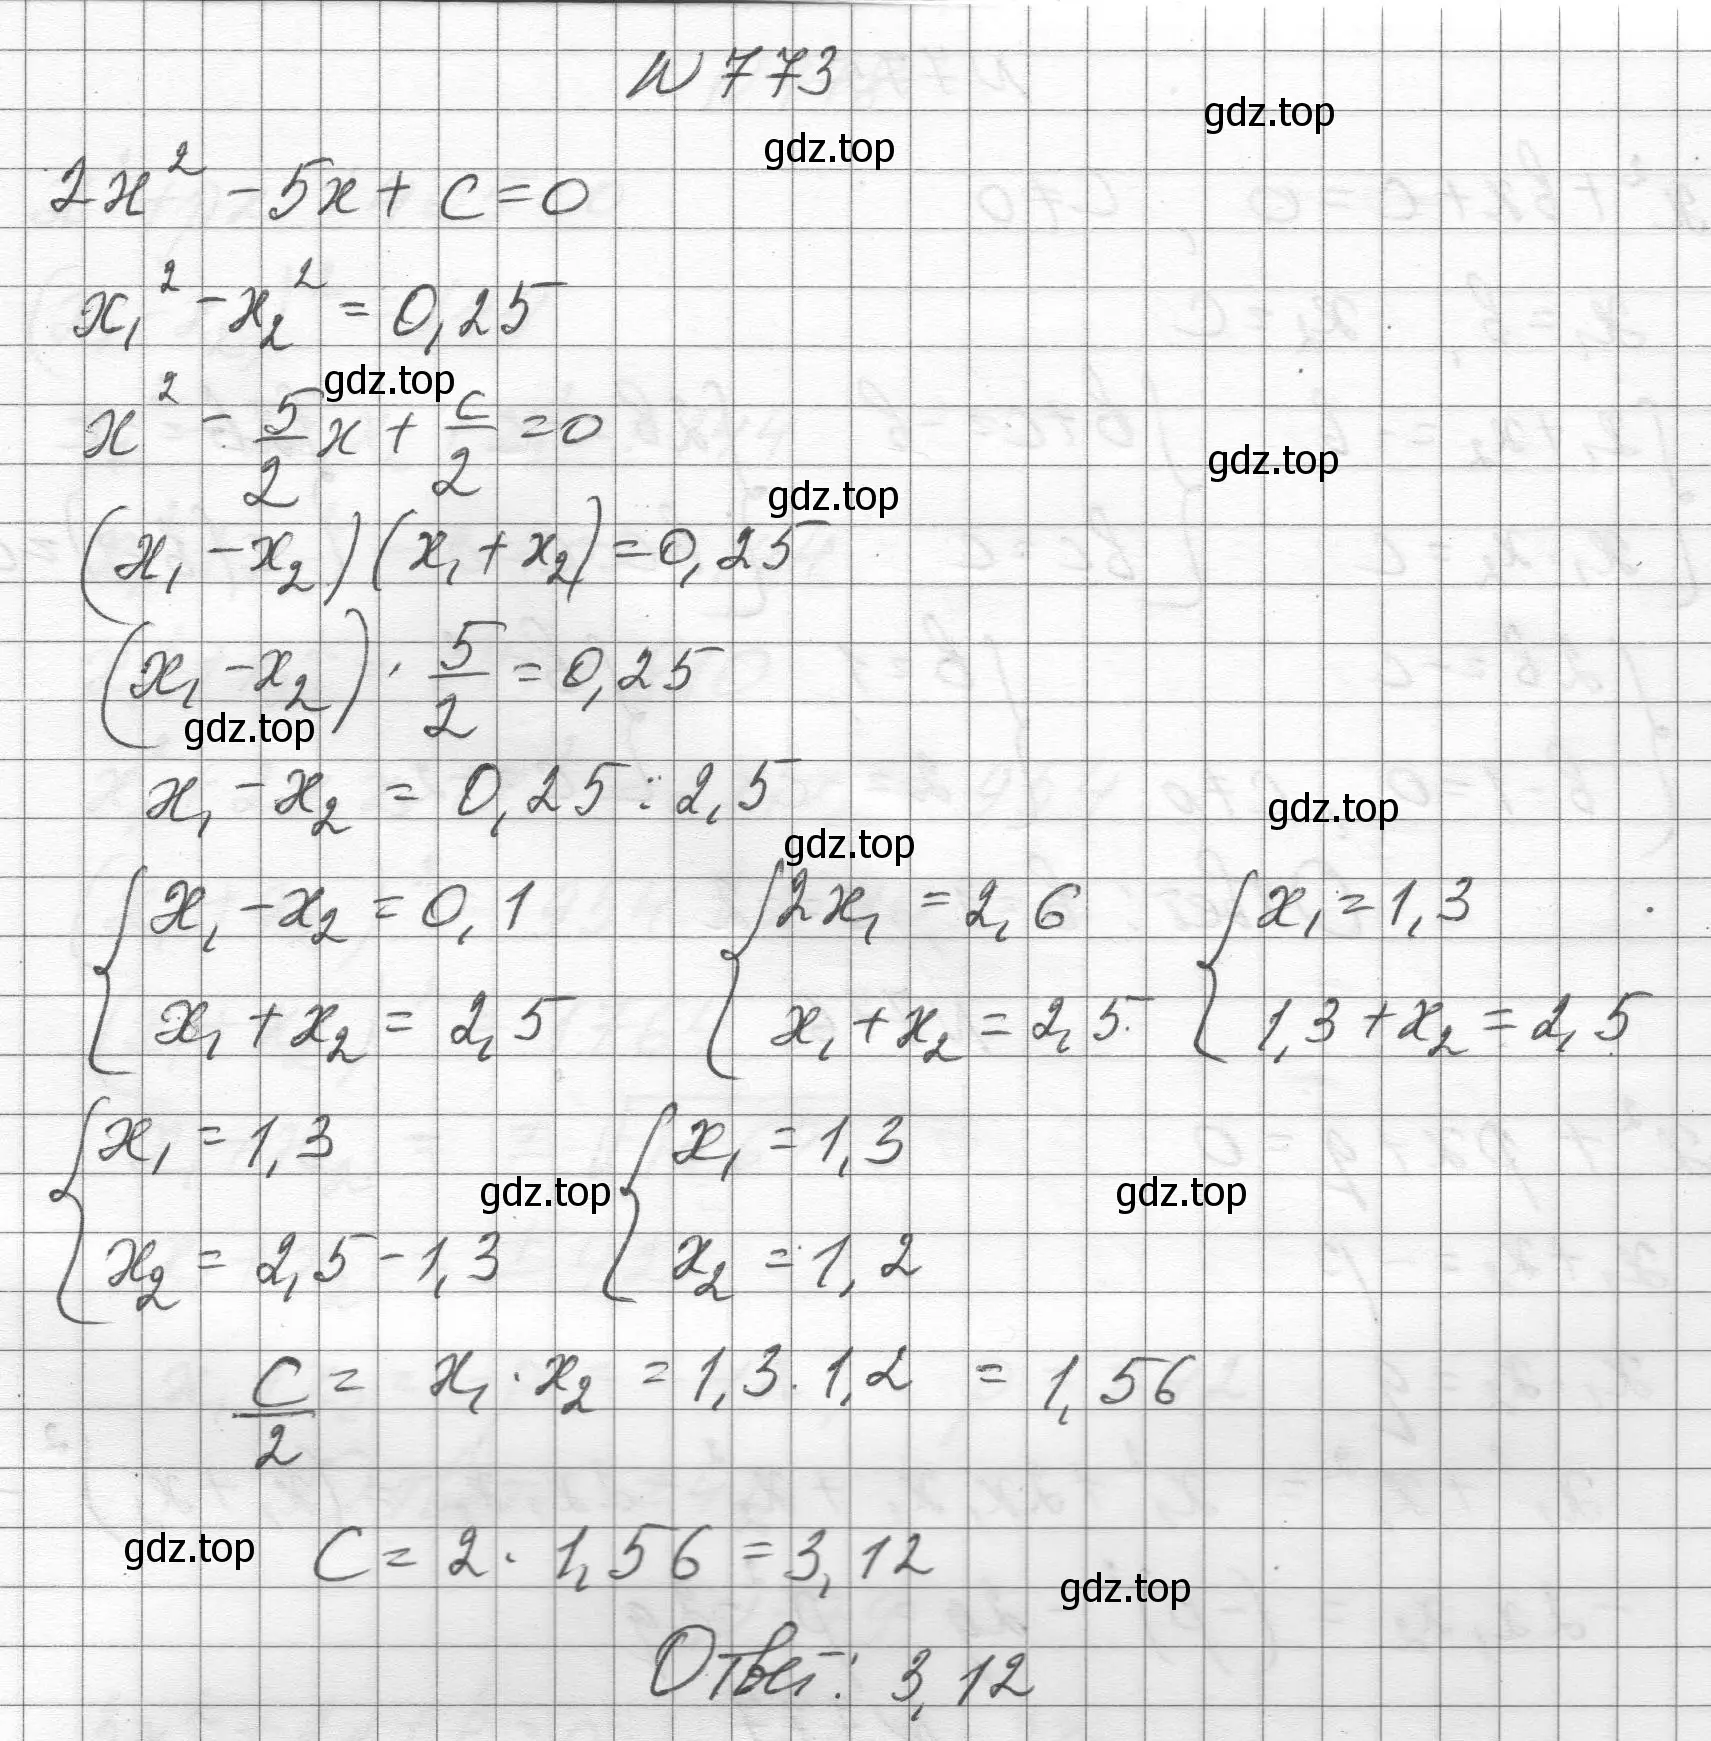 № 773
gdz.top
gdz.top
2x² - 5x + c = 0
x₁² - x₂² = 0,25
gdz.top
x² - 5/2 x + c/2 = 0
gdz.top
gdz.top
(x₁ - x₂)(x₁ + x₂) = 0,25
(x₁ - x₂) · 5/2 = 0,25
gdz.top
x₁ - x₂ = 0,25 : 2,5
gdz.top
gdz.top
{ x₁ - x₂ = 0,1 { 2x₁ = 2,6 { x₁ = 1,3
x₁ + x₂ = 2,5 x₁ + x₂ = 2,5 1,3 + x₂ = 2,5
{ x₁ = 1,3 { x₁ = 1,3
gdz.top gdz.top
x₂ = 2,5 - 1,3 x₂ = 1,2
c/2 = x₁ · x₂ = 1,3 · 1,2 = 1,56
gdz.top
c = 2 · 1,56 = 3,12
gdz.top
Ответ: 3,12